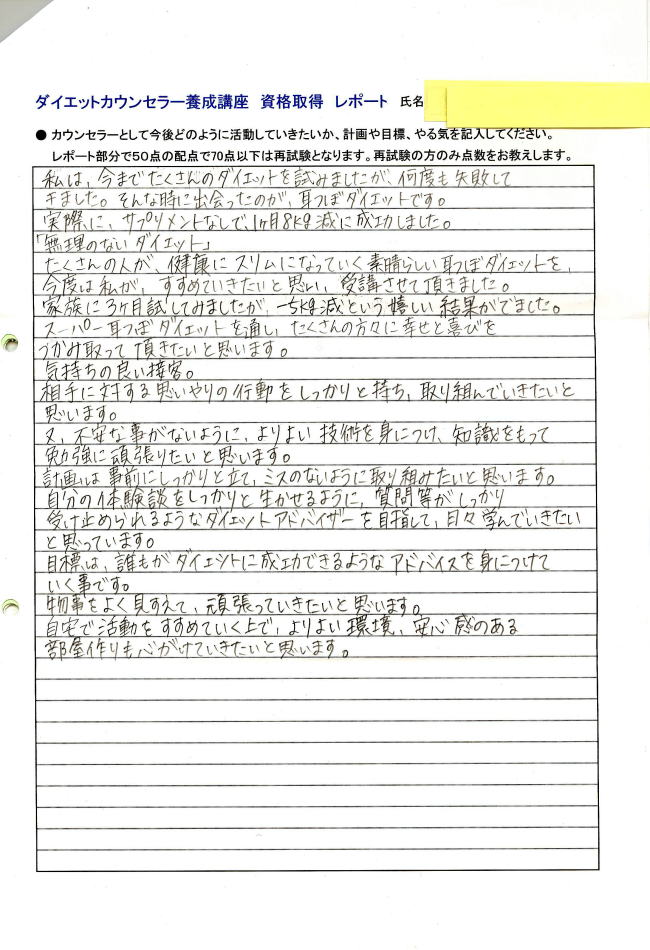 ダイエットカウンセラー養成講座 資格取得 レポート 氏名
● カウンセラーとして今後どのように活動していきたいか、計画や目標、やる気を記入してください。
レポート部分で50点の配点で70点以下は再試験となります。再試験の方のみ点数をお教えします。
私は、今までたくさんのダイエットを試みましたが、何度も失敗して
きました。そんな時に出会ったのが、耳つぼダイエットです。
実際に、サプリメントなしで、1ヶ月8kg減に成功しました。
「無理のないダイエット」
たくさんの人が、健康にスリムになっていく素晴らしい耳つぼダイエットを、
今度は私が、すすめていきたいと思い、受講させて頂きました。
家族に3ヶ月試してみましたが、-5kg減という嬉しい結果がでました。
スーパー耳つぼダイエットを通し、たくさんの方々に幸せと喜びを
つかみ取って頂きたいと思います。
気持ちの良い接客。
相手に対する思いやりの行動をしっかりと持ち、取り組んでいきたいと
思います。
又、不安な事がないように、よりよい技術を身につけ、知識をもって
勉強に頑張りたいと思います。
計画は事前にしっかりと立て、ミスのないように取り組みたいと思います。
自分の体験談をしっかりと生かせるように、質問等がしっかり
受け止められるようなダイエットアドバイザーを目指して、日々学んでいきたい
と思っています。
目標は、誰もがダイエットに成功できるようなアドバイスを身につけて
いく事です。
物事をよく見すえて、頑張っていきたいと思います。
自宅で活動をすすめていく上で、よりよい環境、安心感のある
部屋作りも心がけていきたいと思います。